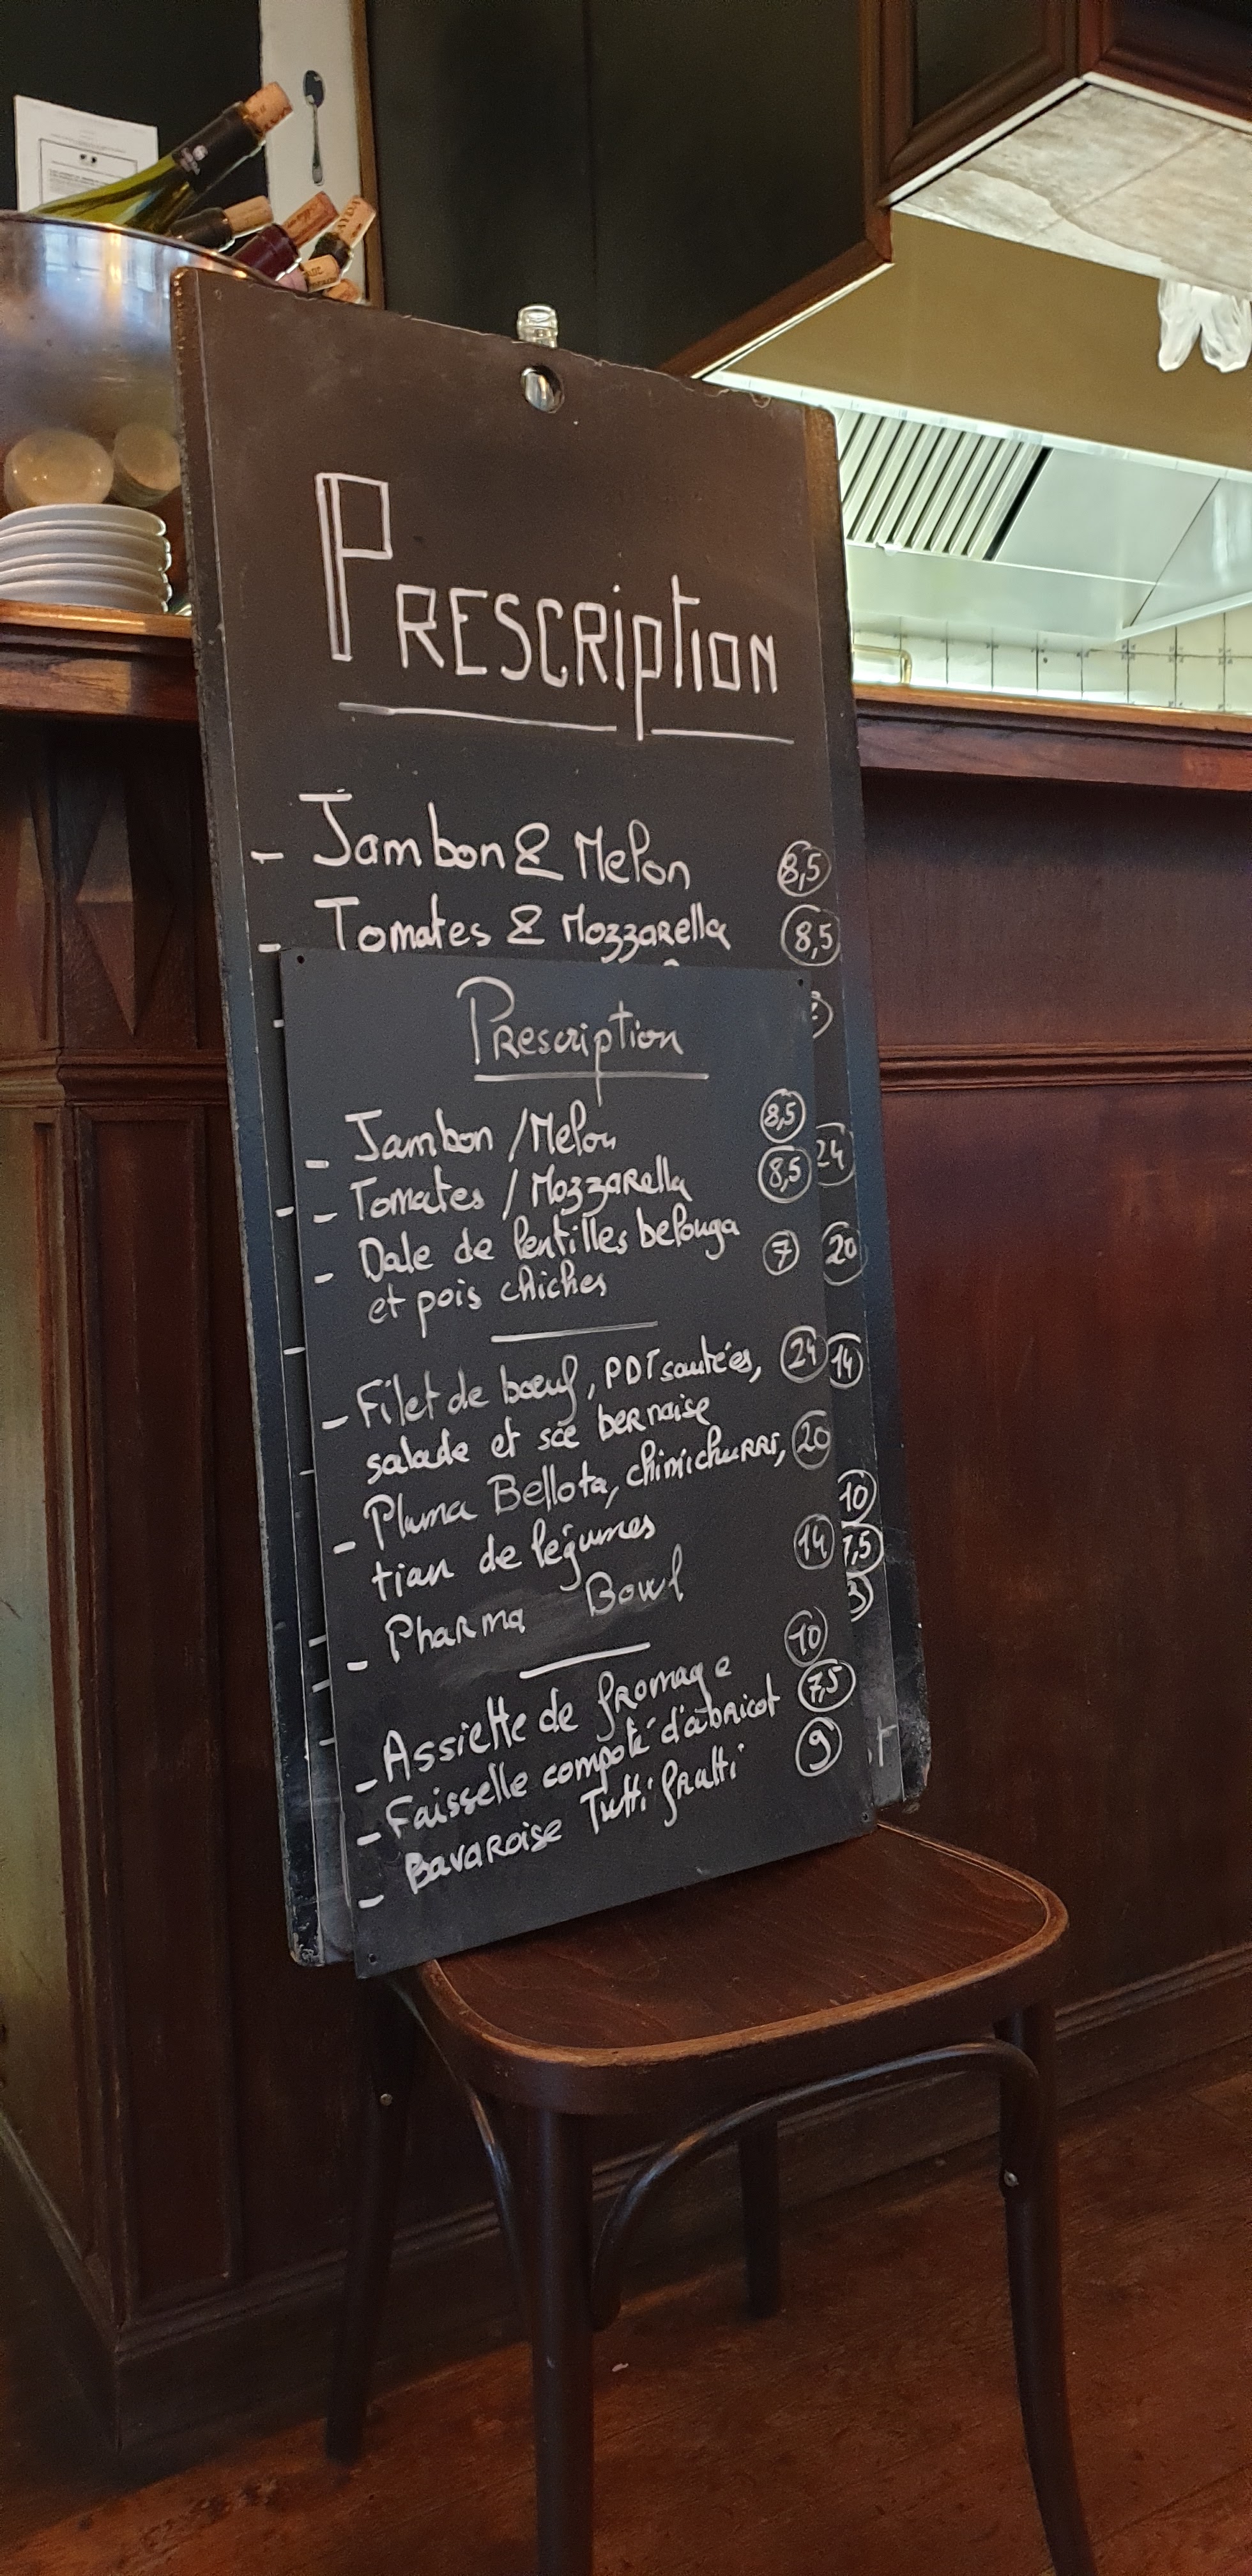 Prescription
- Jambon & Melon 8,5
- Tomates & Mozzarella 8,5
Prescription
- Jambon / Melon 8,5
- Tomates / Mozzarella 8,5
- Dale de lentilles belouga 7
et pois chiches
- Filet de bœuf, PDT sautées, 24
salade et sce bernaise
- Pluma Bellota, chimichurri, 20
tian de légumes
- Pharma Bowl 14
- Assiette de fromage 10
- Faisselle compoté d'abricot 7,5
- Bavaroise Tutti frutti 9
24
20
14
10
7,5